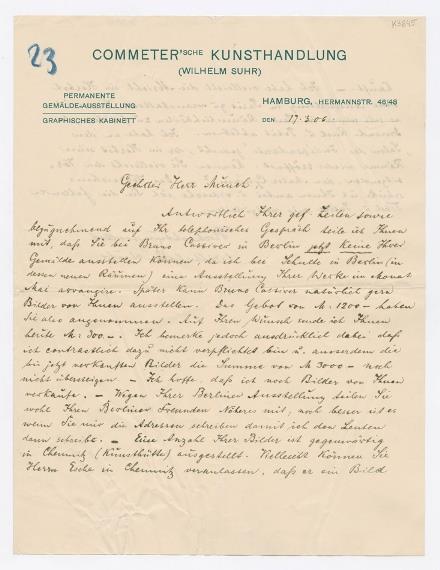 K3645
23
COMMETER'SCHE KUNSTHANDLUNG
(WILHELM SUHR)
PERMANENTE
GEMÄLDE-AUSSTELLUNG
GRAPHISCHES KABINETT
HAMBURG, HERMANNSTR. 46/48
DEN 17.3.06.
Geehrter Herr Munch
Antwortlich Ihrer gef. Zeilen sowie
bezugnehmend auf Ihr telephonisches Gespräch teile ich Ihnen
mit, daß Sie bei Bruno Cassirer in Berlin jetzt keine Ihrer
Gemälde ausstellen können, da ich bei Schulte in Berlin (in
dessen neuen Räumen) eine Ausstellung Ihrer Werke im Monat
Mai arrangire. Später kann Bruno Cassirer natürlich gern
Bilder von Ihnen ausstellen. Das Gebot von M. 1200 – haben
Sie also angenommen. Auf Ihren Wunsch sende ich Ihnen
heute M. 300.–. Ich bemerke jedoch ausdrücklich dabei daß
ich contractlich dazu nicht verpflichtet bin u. ausserdem die
bis jetzt verkauften Bilder die Summe von M 3000 – noch
nicht übersteigen – Ich hoffe daß ich noch Bilder von Ihnen
verkaufe. – Wegen Ihrer Berliner Ausstellung teilen Sie
wohl Ihren Berliner Freunden Näheres mit, noch besser ist es
wenn Sie mir die Adressen schreiben damit ich den Leuten
dann schreibe. – Eine Anzahl Ihrer Bilder ist gegenwärtig
in Chemnitz (Kunsthütte) ausgestellt. Vielleicht können Sie
Herrn Esche in Chemnitz veranlassen, daß er ein Bild